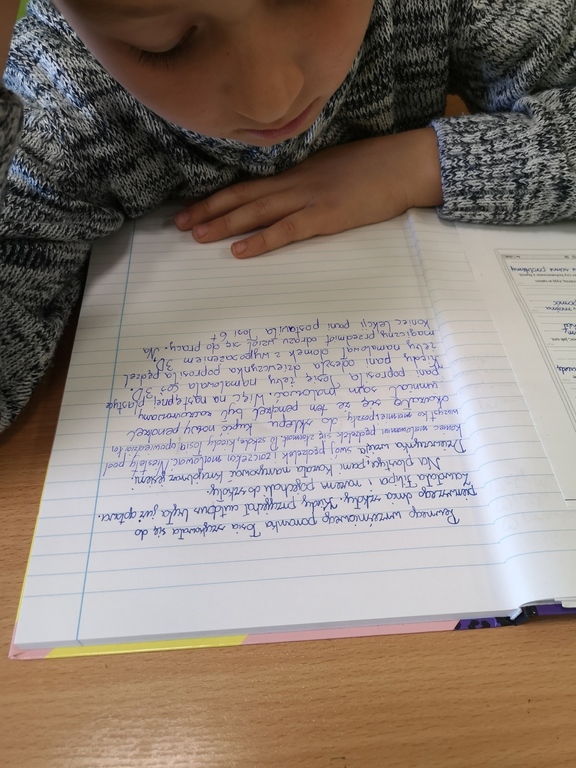 Pewnego wrześniowego poranka Tosia szykowała się do
pierwszego dnia szkoły. Kiedy przyjechał autobus była już gotowa.
Zawołała Filipa i razem pojechali do szkoły.
Na plastyce, pani kazała narysować krajobraz jesieni
Dziewczynka wzięła swój pędzelek i zaczęła malować. Niestety pod
koniec malowania pędzelek się złamał. Po szkole, kiedy Tosia opowiedziała
wszystko mamie poszły do sklepu kupić nowy pędzel.
Okazało się że ten pędzel był zaczarowany
umiał sam malować. Więc na następnej plastyce
pani poprosiła Tosię żeby namalowała coś 3D.
Kiedy pani odeszła dziewczynka poprosiła pędzel
żeby namalował domek z wyposażeniem 3D.
magiczny przedmiot odrazu wziął się do pracy. Na
koniec lekcji pani postawiła Tosi 6+